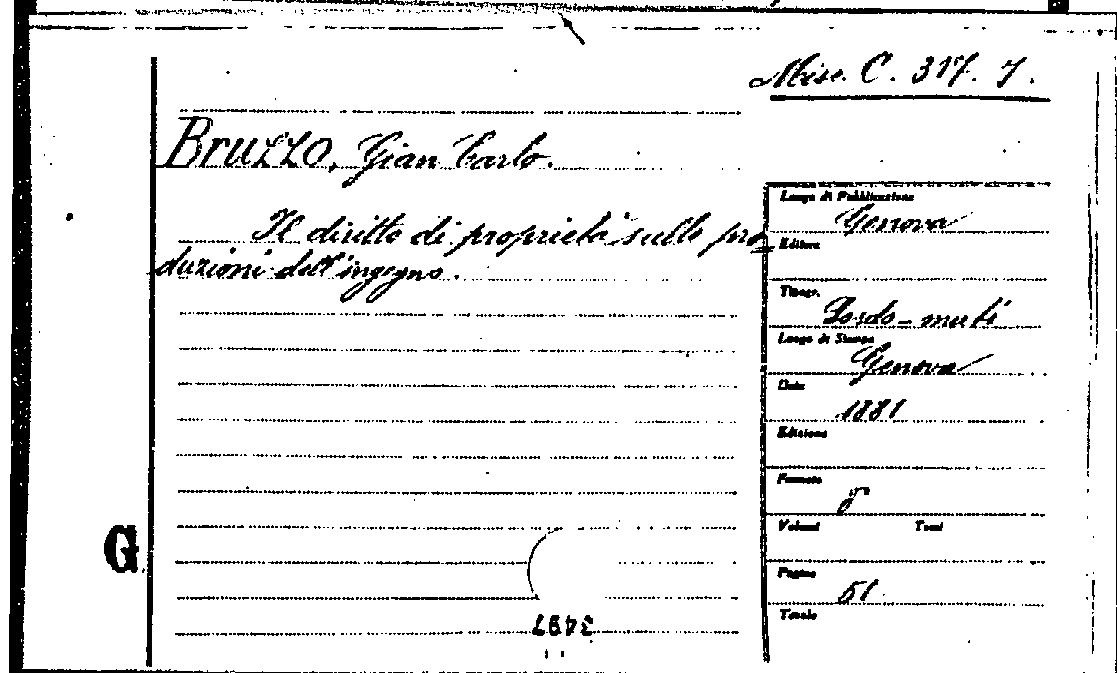 Misc. C. 317. 7.
Bruzzo, Gian Carlo.
Il diritto di proprietà sulle pro
duzioni dell'ingegno.
Luogo di Pubblicazione
Genova
Editore
Tipogr.
Sordo-muti
Luogo di Stampa
Genova
Data
1881
Edizione
Formato
8°
Volumi Tomi
Pagine
51
Tavole
G
3497